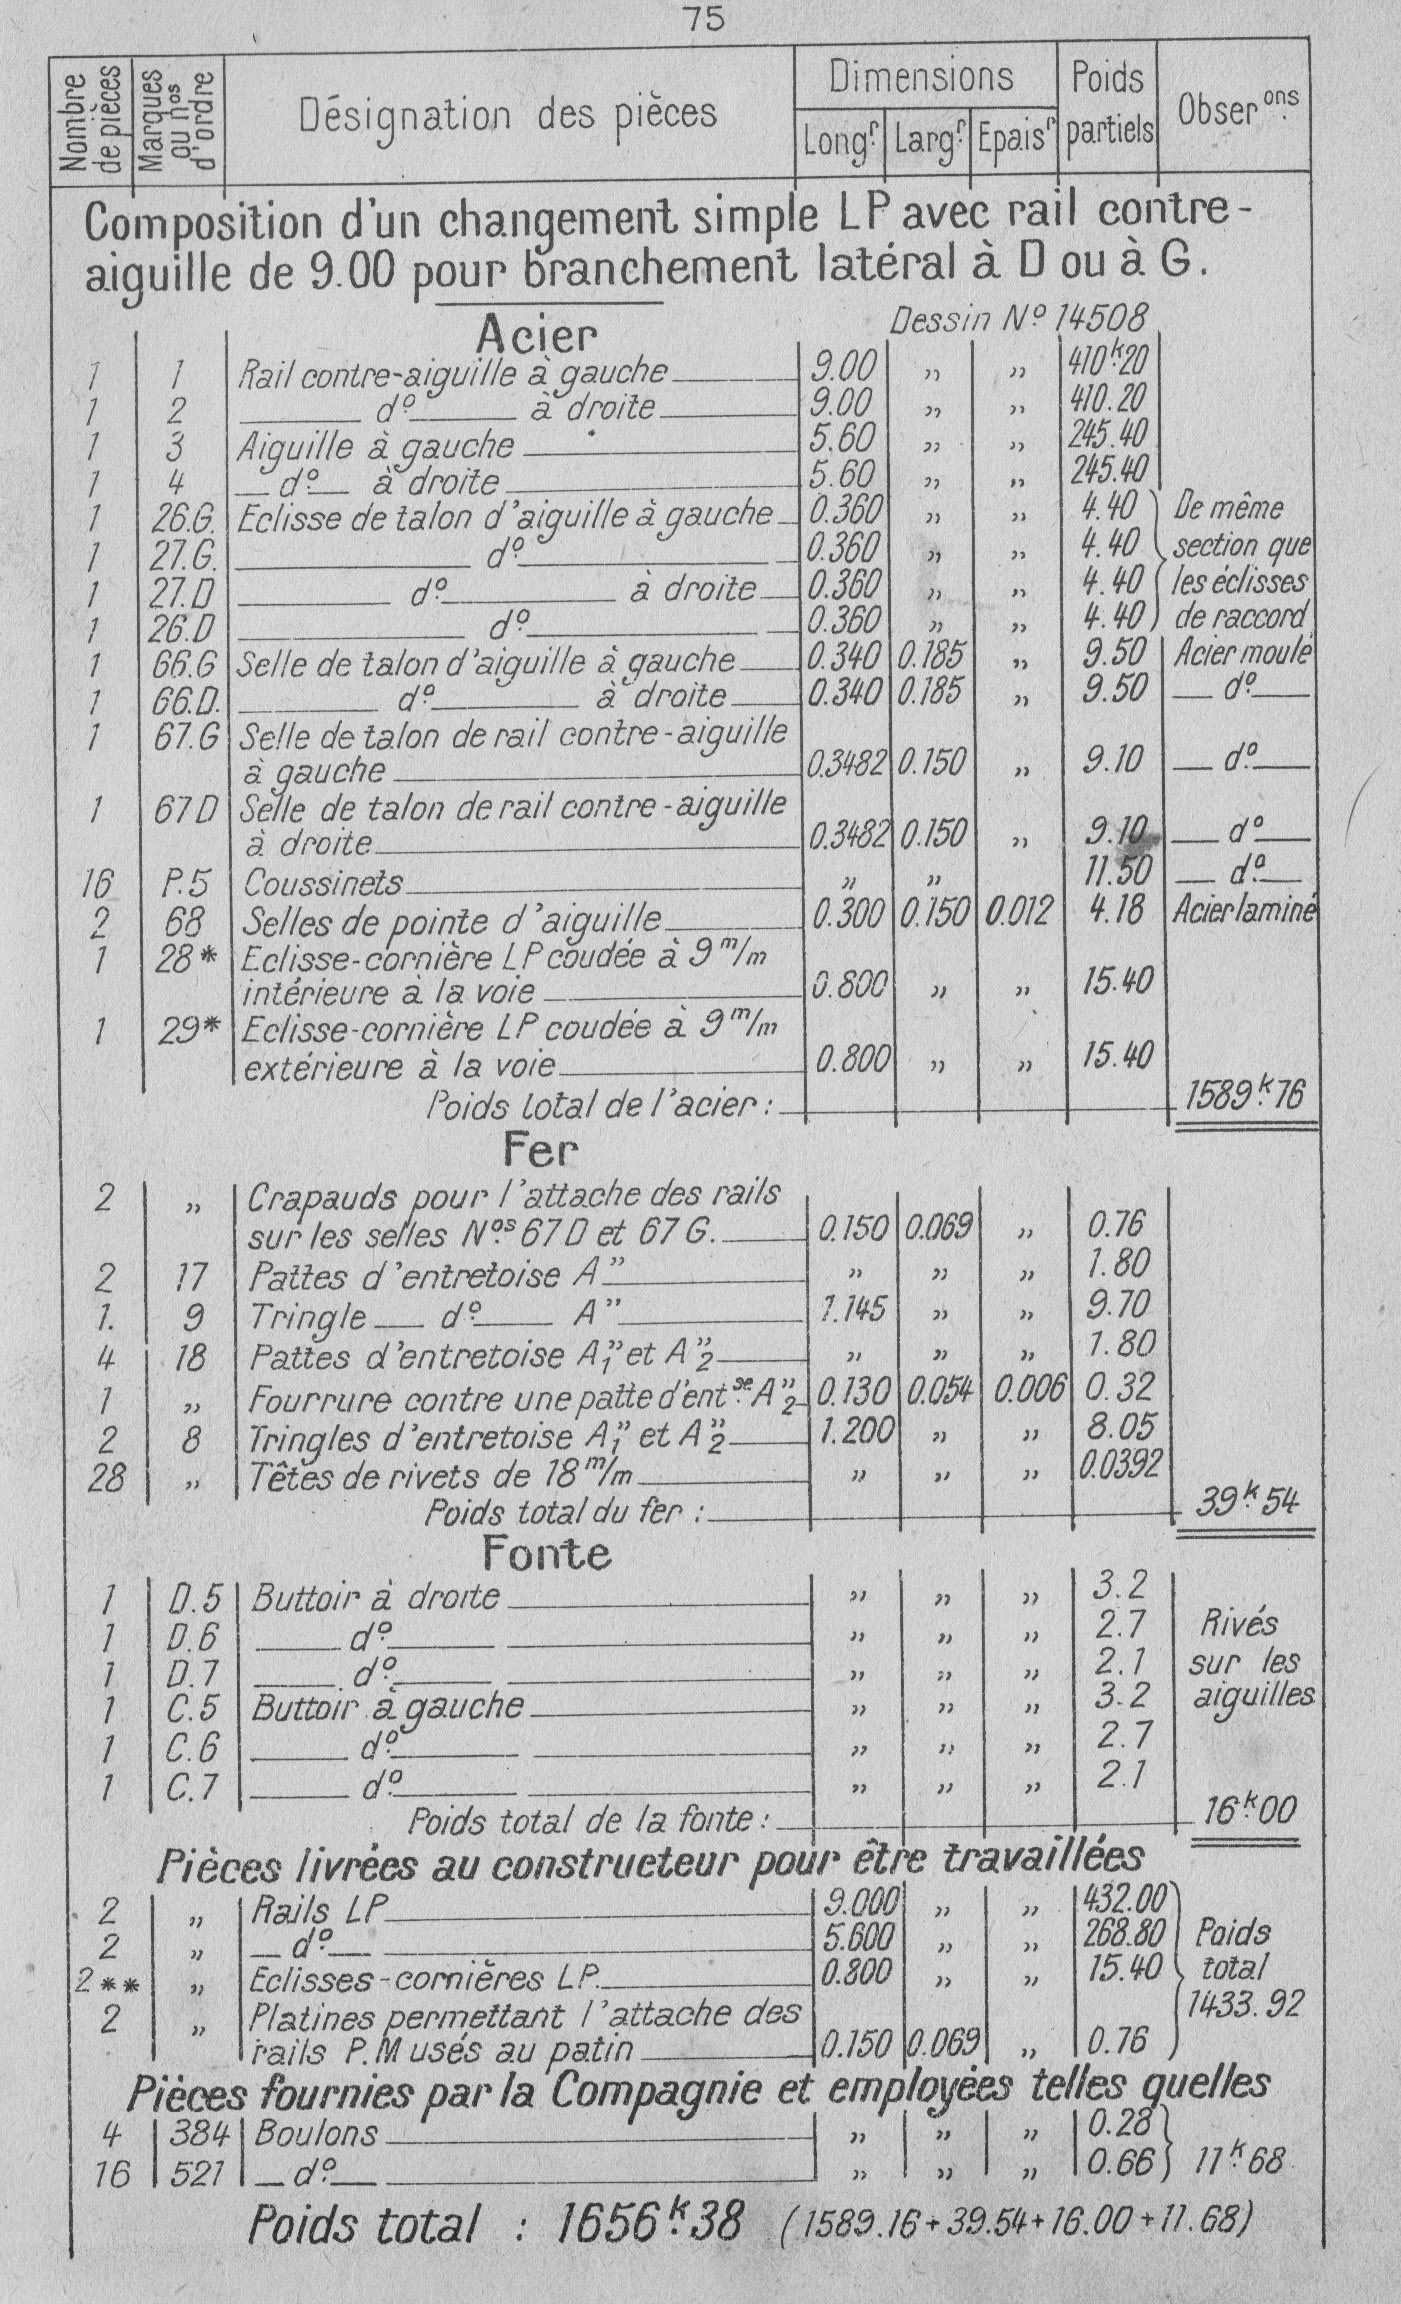 75
Nombre de pièces | Marques ou nos d'ordre | Désignation des pièces | Dimensions | Poids partiels | Obser.ons
Longr. | Largr. | Epaisr
Composition d'un changement simple LP avec rail contre-
aiguille de 9.00 pour branchement latéral à D ou à G.
Acier
Dessin No 14508
1 1 Rail contre-aiguille à gauche 9.00 „ „ 410k.20
1 2 do. à droite 9.00 „ „ 410.20
1 3 Aiguille à gauche 5.60 „ „ 245.40
1 4 do. à droite 5.60 „ „ 245.40
1 26.G. Eclisse de talon d'aiguille à gauche 0.360 „ „ 4.40 De même
1 27.G. do. 0.360 „ „ 4.40 section que
1 27.D do. à droite 0.360 „ „ 4.40 les éclisses
1 26.D do. 0.360 „ „ 4.40 de raccord
1 66.G Selle de talon d'aiguille à gauche 0.340 0.185 „ 9.50 Acier moulé
1 66.D. do. à droite 0.340 0.185 „ 9.50 do.
1 67.G Selle de talon de rail contre-aiguille
à gauche 0.3482 0.150 „ 9.10 do.
1 67D Selle de talon de rail contre-aiguille
à droite 0.3482 0.150 „ 9.10 do
16 P.5 Coussinets „ „ 11.50 do.
2 68 Selles de pointe d'aiguille 0.300 0.150 0.012 4.18 Acier laminé
1 28* Eclisse-cornière LP coudée à 9 m/m
intérieure à la voie 0.800 „ „ 15.40
1 29* Eclisse-cornière LP coudée à 9 m/m
extérieure à la voie 0.800 „ „ 15.40
Poids total de l'acier : 1589k.76
Fer
2 „ Crapauds pour l'attache des rails
sur les selles Nos 67D et 67G. 0.150 0.069 „ 0.76
2 17 Pattes d'entretoise A" „ „ „ 1.80
1. 9 Tringle do. A" 1.145 „ „ 9.70
4 18 Pattes d'entretoise A"1 et A"2 „ „ „ 1.80
1 „ Fourrure contre une patte d'ent.se A"2 0.130 0.054 0.006 0.32
2 8 Tringles d'entretoise A"1 et A"2 1.200 „ „ 8.05
28 „ Têtes de rivets de 18 m/m „ „ „ 0.0392
Poids total du fer : 39k.54
Fonte
1 D.5 Buttoir à droite „ „ „ 3.2
1 D.6 do. „ „ „ 2.7 Rivés
1 D.7 do. „ „ „ 2.1 sur les
1 C.5 Buttoir à gauche „ „ „ 3.2 aiguilles
1 C.6 do. „ „ „ 2.7
1 C.7 do. „ „ „ 2.1
Poids total de la fonte : 16k.00
Pièces livrées au constructeur pour être travaillées
2 „ Rails LP 9.000 „ „ 432.00
2 „ do. 5.600 „ „ 268.80 Poids
2** „ Eclisses-cornières LP. 0.800 „ „ 15.40 total
2 „ Platines permettant l'attache des 1433.92
rails P.M usés au patin 0.150 0.069 „ 0.76
Pièces fournies par la Compagnie et employées telles quelles
4 384 Boulons „ „ „ 0.28
16 521 do. „ „ „ 0.66 11k.68
Poids total : 1656k.38 (1589.16+39.54+16.00+11.68)